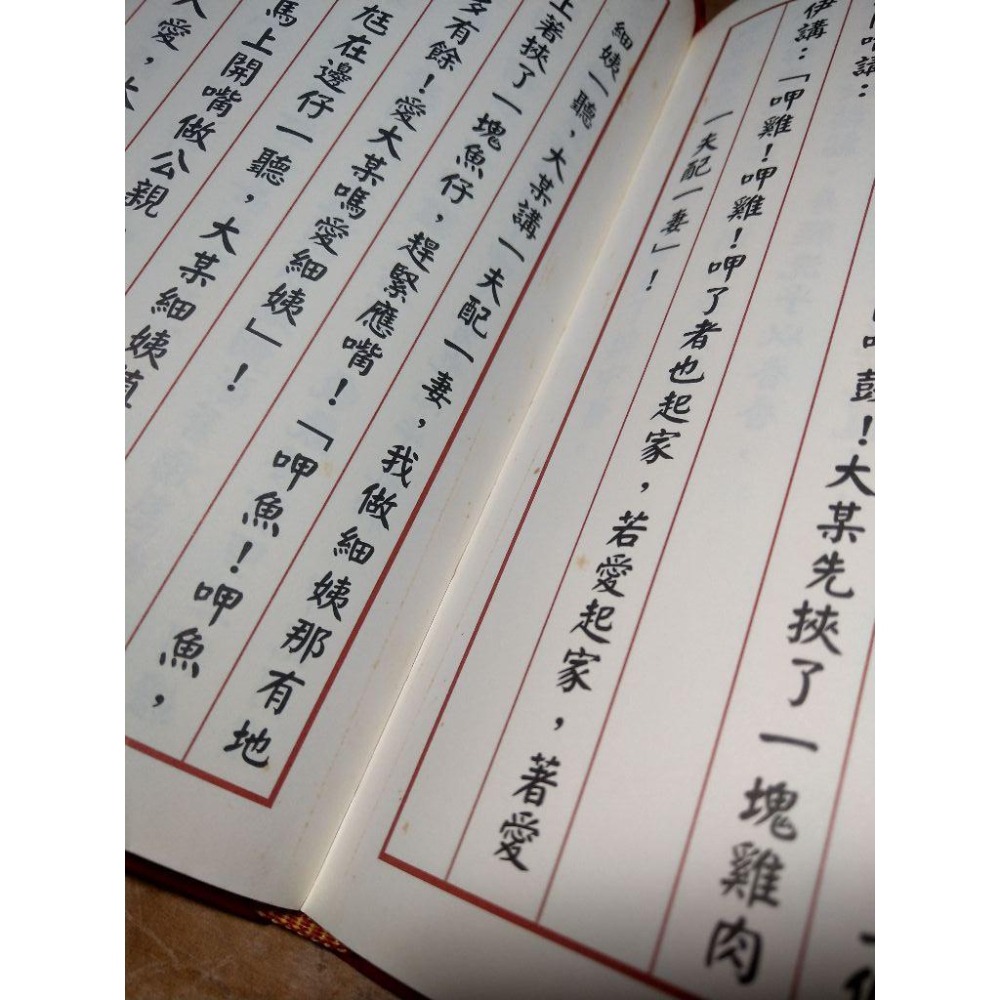 講：
！大某先挾了一塊雞肉
伊講：「呷雞！呷雞！呷了者也起家，若愛起家，著愛
一夫配一妻」！
細姨一聽，大某講一夫配一妻，我做細姨那有地
上著挾了一塊魚仔，趕緊應嘴！「呷魚！呷魚，
多有餘！愛大某嗎愛細姨」！
尪在邊仔一聽，大某細姨值
馬上開嘴做公親
人愛，